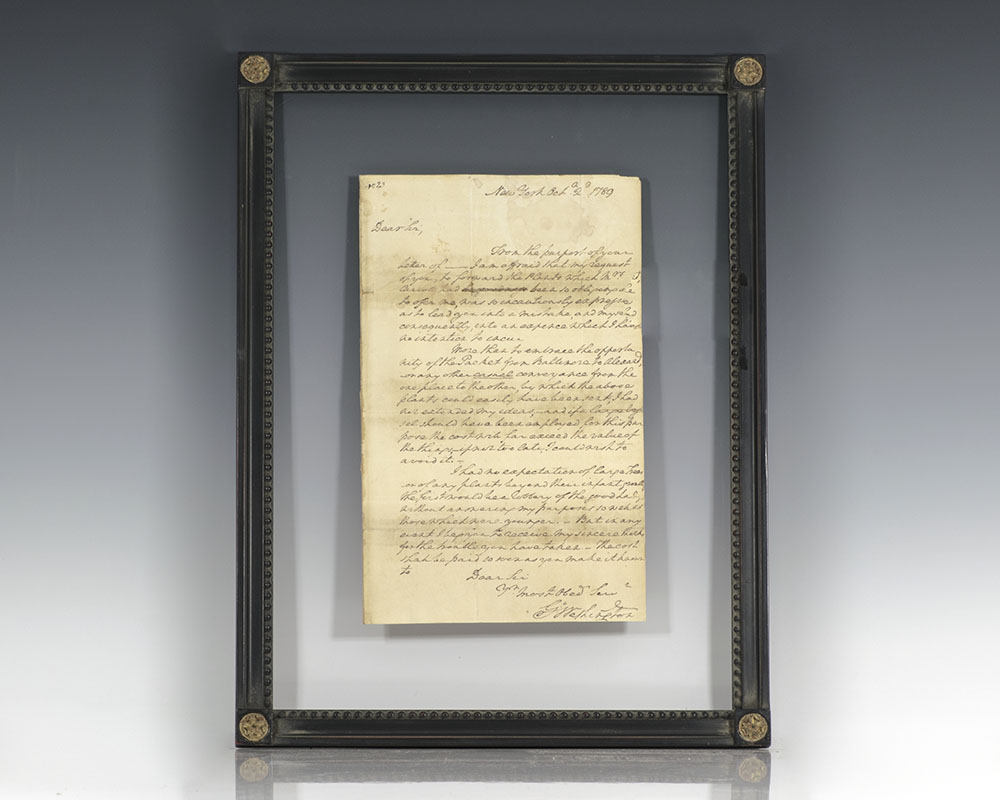 New York Oct. 2d 1789
Dear Sir,
From the purport of your
letter of — I am afraid that my request
of you, to forward the Plants which Mrs
had been so obliging as
to offer me, was so incautiously expressed
as to lead you into a mistake and myself
consequently, into an expence which I have
no intention to incur.
More than to embrace the opportu
nity of the Packet from Baltimore to Alexand
or any other casual conveyance from the
one place to the other, by which the above
plants could easily have been sent, I had
not extended my ideas, and if a large
sel should have been employed for this pur
pose the cost wch far exceed the value of
the things, if not too late, I could wish to
avoid it.—
I had no expectation of large Trees
or of any plants beyond their infant growth
the first would be a robbery of the good Lady
without answering my purposes so well as
those which were younger.— But in any
event I beg you to receive my sincere thanks
for the trouble you have taken — The cost
shall be paid so soon as you make it known
to
Dear Sir
Yr Most Obed Serv
Go Washington